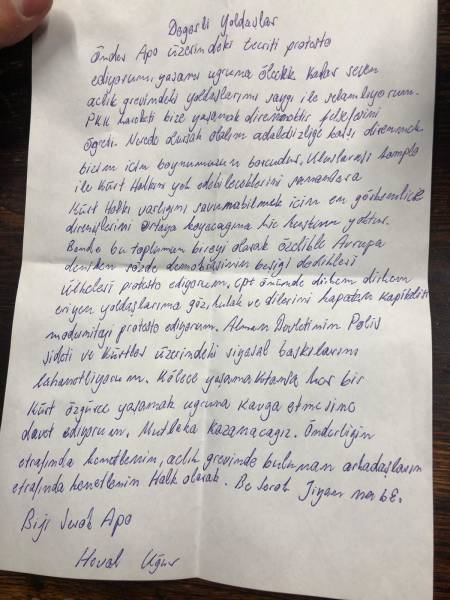 Değerli Yoldaşlar
Önder Apo üzerindeki tecriti protesto
ediyorum, yaşamı uğruna ölecek kadar seven
açlık grevindeki yoldaşlarımı saygı ile selamlıyorum.
PKK hareketi bize yaşamak direnmektir felsefesini
öğretti. Nerde olursak olalım adaletsizliğe karşı direnmek
bizim için boynumuzun borcudur. Uluslarası komplo
ile Kürt Halkını yok edebileceklerini sananlara
Kürt Halkı varlığını savunabilmek için en görkemlice
direnişlerini ortaya koyacağına hiç kuşkum yoktur.
Bende bu toplumun bireyi olarak özelikle Avrupa
denilen sözde demokrasinin beşiği dedikleri
ülkeleri protesto ediyorum, cpt önünde dirhem dirhem
eriyen yoldaşlarıma göz, kulak ve dillerini kapatan kapitalist
moderniteyi protesto ediyorum. Alman Devletinin Polis
şideti ve Kürtler üzerindeki siyasal baskılarını
lahanetliyorum. Kölece yaşama katansa her bir
Kürt özgürce yaşamak uğruna kavga etmesine
davet ediyorum. Mutlaka kazanacağız. Önderliğin
etrafında kenetlenin, açlık grevinde bulunan arkadaşların
etrafında kenetlenin Halk olarak. Be Serok Jiyan nabe.
Biji Serok Apo
Heval Uğur